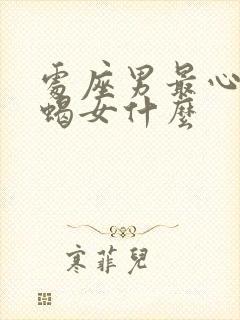 處座男最心
蝎女什麼
寒菲兒